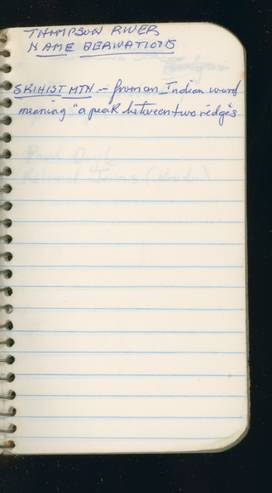 THOMPSON RIVER
NAME DERIVATIONS
SKIHIST MTN. - from an Indian word
meaning "a peak between two ridges.